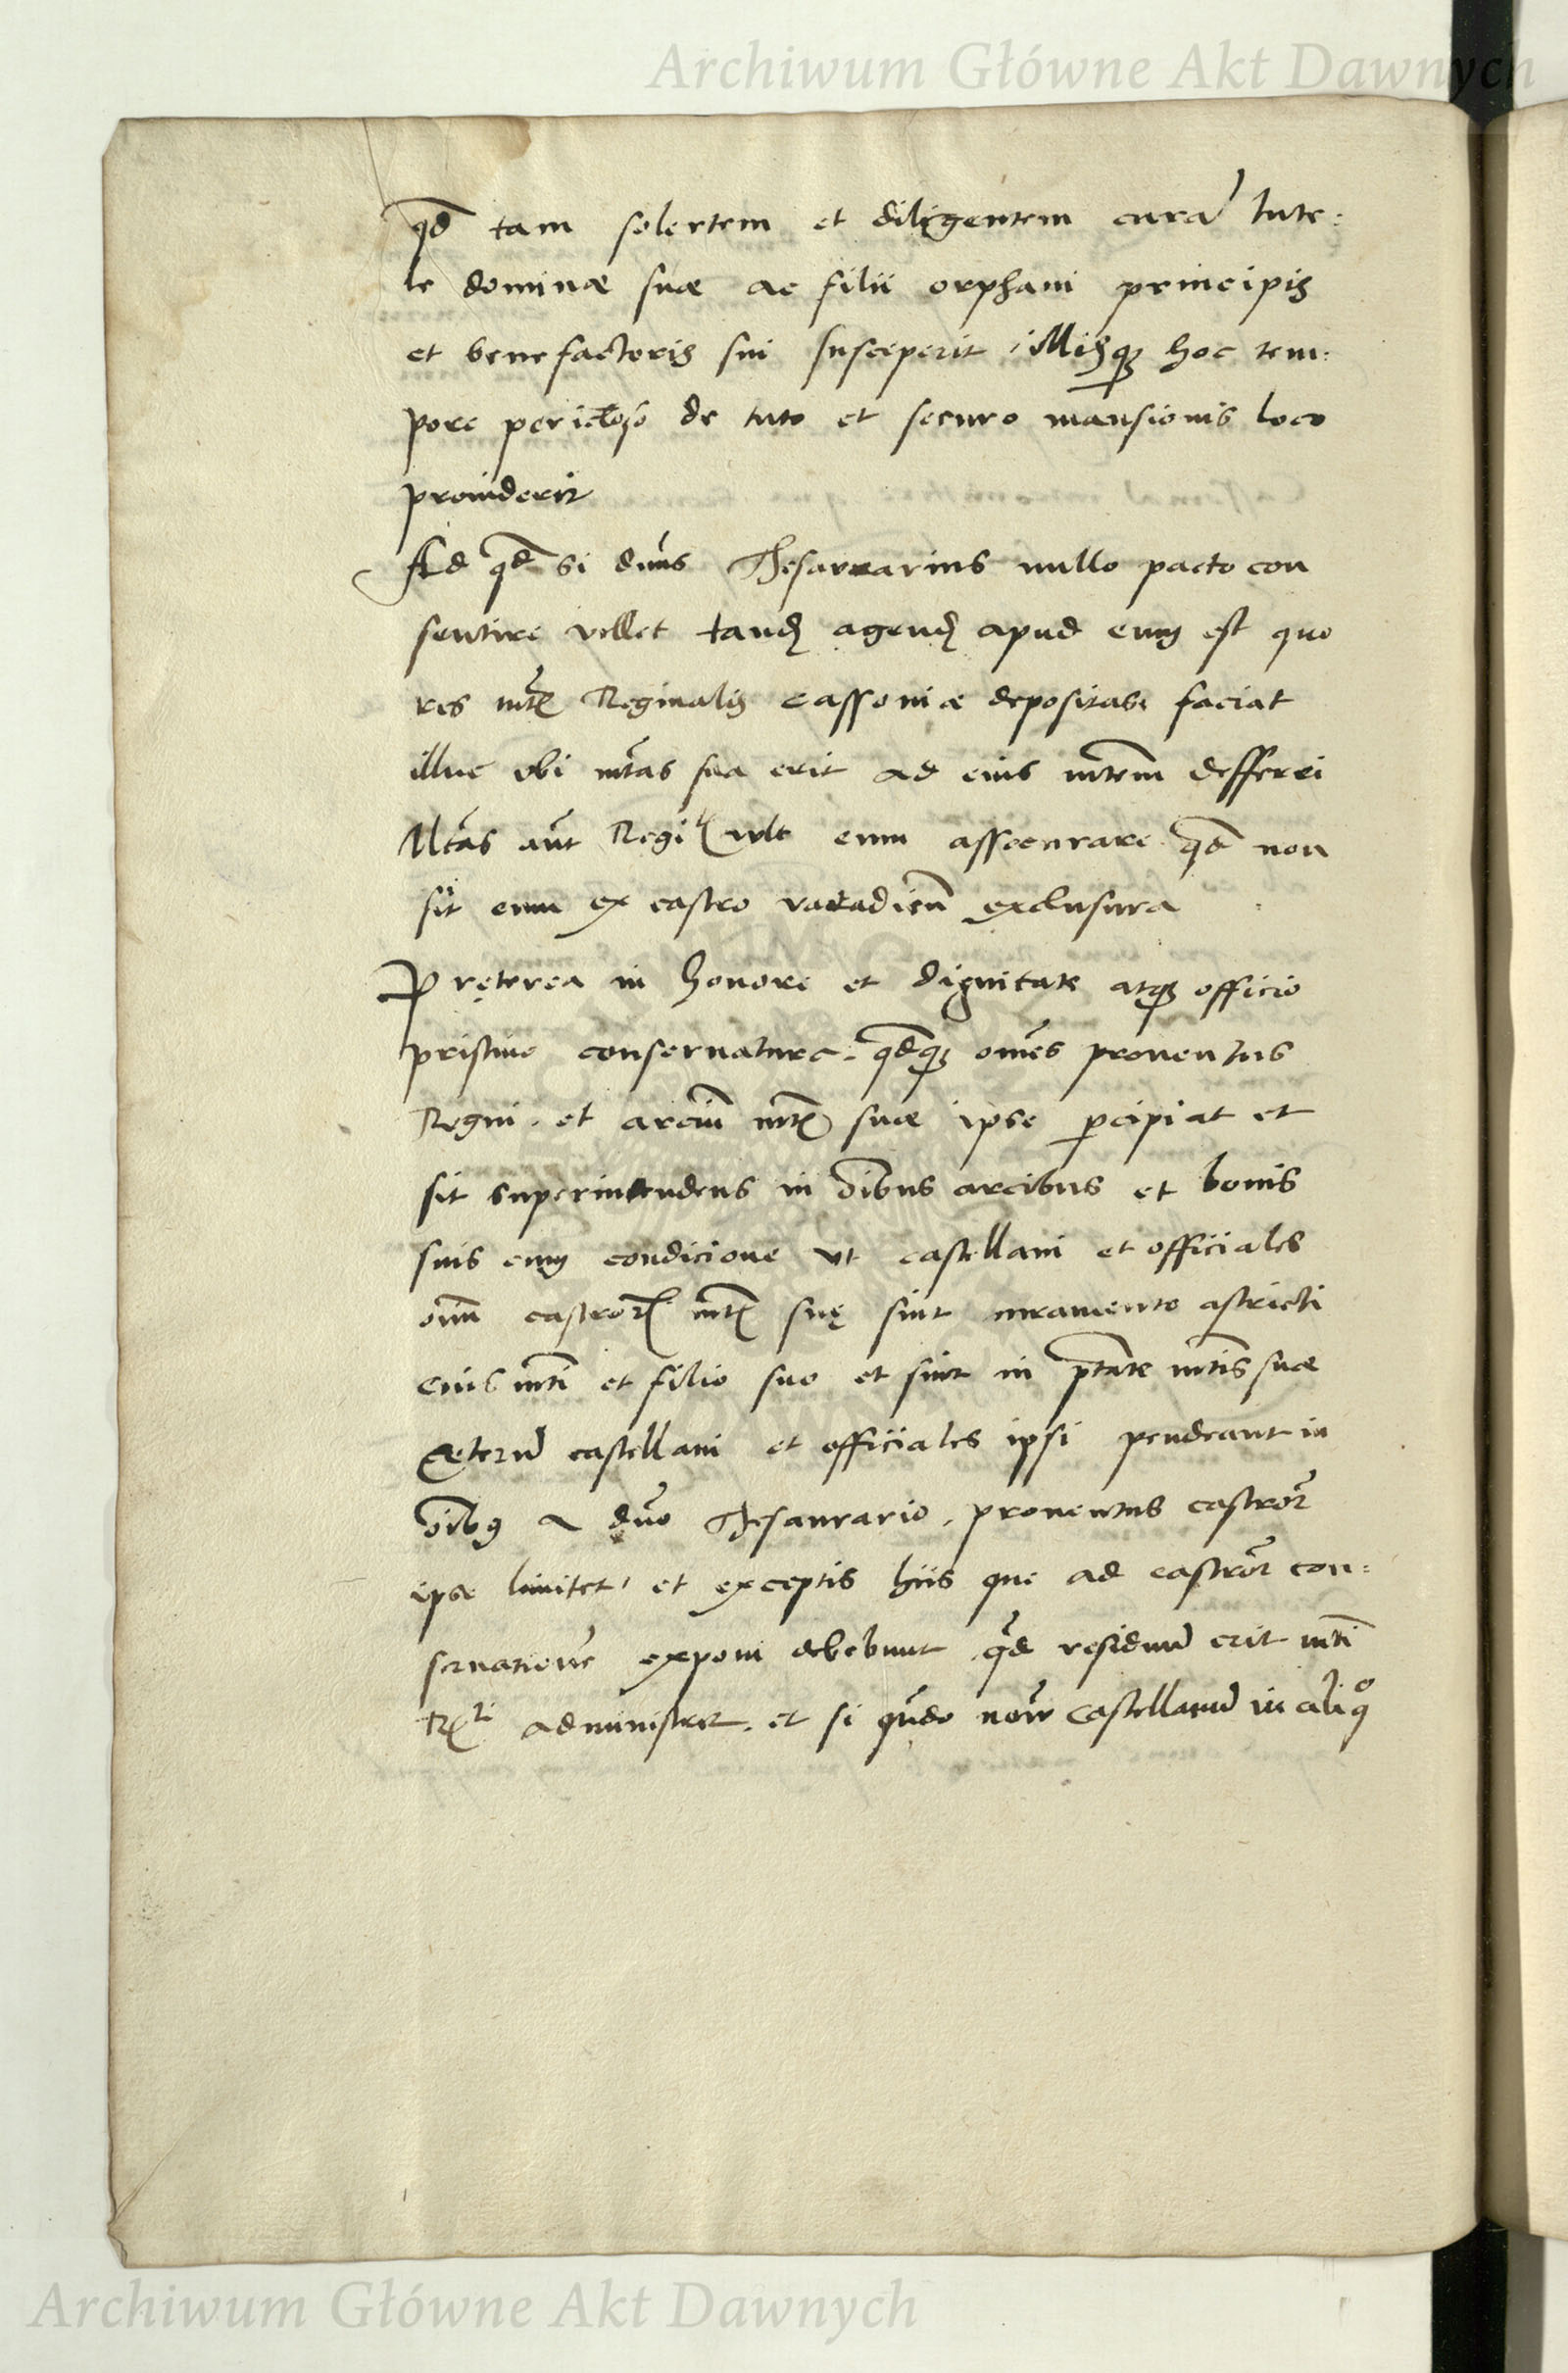 Archiwum Główne Akt Dawnych
qd tam solertem et diligentem curā tute:
le dominæ suæ ac filii orphani principis
et benefactoris sui susceperit, illisq; hoc tem:
pore pericloso de tuto et securo mansionis loco
prouiderit
Ad qd si dn̄s Thesaurarius nullo pacto con
sentire vellet tand agend apud eum est quo
res mt̄ Reginalis Cassoniæ depositas faciat
illuc vbi mt̄as sua erit ad eius mt̄em defferri
Mt̄as aūt Regi wlt eum assecurare qd non
sit eum ex castro varadien̄ exclusura
Pręterea in honore et dignitate atq; officio
pristino conseruatura. qdq; om̄es prouentus
Regni. et arciū mt̄ suæ ipse p̱cipiat et
sit superintendens in oībus arcibus et bonis
suis cum condicione vt castellani et officiales
oīm castror mt̄ suę sint iuramento astricti
eius mt̄i et filio suo et sint in p̄tate mt̄is suæ
Cæterū castellani et officiales ipsi pendeant in
oībꝰ a dn̄o Thesaurario. prouentus castror̄
ipse limitet, et exceptis hiis que ad castror̄ con:
seruationē exponi debebunt qd residuū erit mt̄i
R administret. et si qn̄do nouū castellanū in aliqo
Archiwum Główne Akt Dawnych